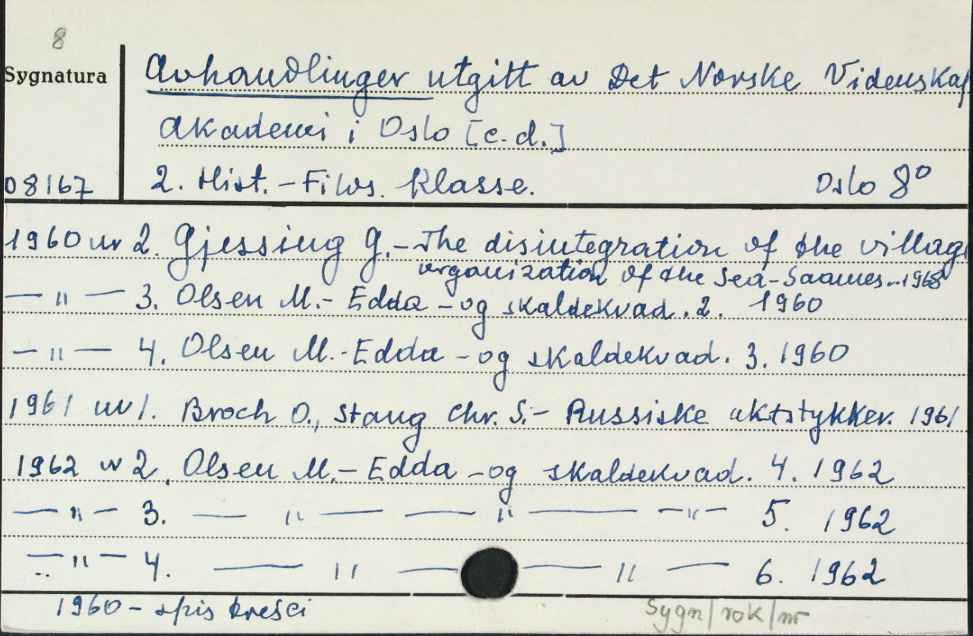 8
Sygnatura
Avhandlinger utgitt av Det Norske Videnskap
Akademi i Oslo [c.d.]
08167
2. Hist. - Filos. Klasse. Oslo 8°
1960 nr 2. Gjessing G. - The disintegration of the villag
organization of the Sea-Saames.. 1968
— " — 3. Olsen M. - Edda - og skaldekvad. 2. 1960
— " — 4. Olsen M. - Edda - og skaldekvad. 3. 1960
1961 nr 1. Broch O., Stang Chr. S. - Russiske aktstykker. 1961
1962 nr 2. Olsen M. - Edda - og skaldekvad. 4. 1962
— " — 3. — " — — " — — " — 5. 1962
— " — 4. — " — — " — 6. 1962
1960 - spis treści
Sygn/rok/nr